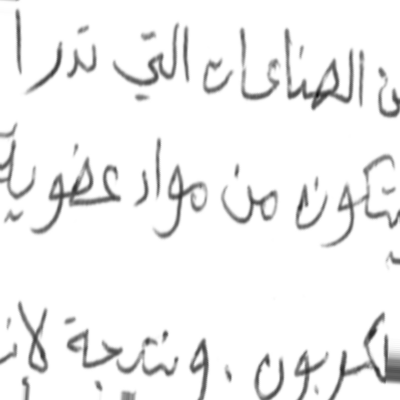 من الصناعات التي تدر ا
يتكون من مواد عضوية
لكربون . و نتيجة لإنـ